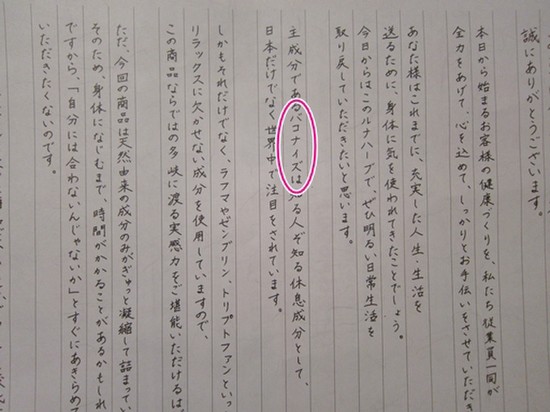 誠にありがとうございます。
本日から始まるお客様の健康づくりを、私たち従業員一同が
全力をあげて、心を込めて、しっかりとお手伝いをさせていただき
あなた様はこれまでに、充実した人生・生活を
送るために、身体に気を使われてきたことでしょう。
今日からは、このルナハーブで、ぜひ明るい日常生活を
取り戻していただきたいと思います。
主成分であるバコナイズは知る人ぞ知る休息成分として、
日本だけでなく世界中で注目をされています。
しかもそれだけでなく、ラフマやゼンブリン、トリプトファンといっ
リラックスに欠かせない成分を使用していますので、
この商品ならではの多岐に渡る実感力をご堪能いただけるは
ただ、今回の商品は天然由来の成分のみがぎゅっと凝縮して詰まってい
そのため、身体になじむまで、時間がかかることがあるかもしれ
ですから、「自分には合わないんじゃないか」とすぐにあきらめて
いただきたくないのです。